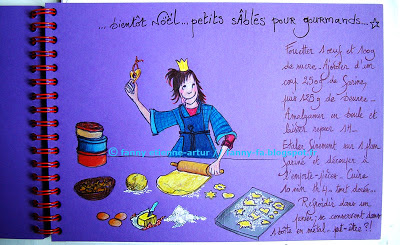 ...bientôt Noël... petits sablés pour gourmands...
Fouetter 1 oeuf et 100g
de sucre. Ajouter d'un
coup 250g de farine,
puis 125g de beurre.
Amalgamer en boule et
laisser reposer 1H...
Etaler finement sur 1 plan
fariné et découper à
l'emporte-pièce. Cuire
10 min th 4... tout doux...
Refroidir dans un
panier, se conservent dans
1 boîte en métal... pt-être ?!
© fanny etienne-artur